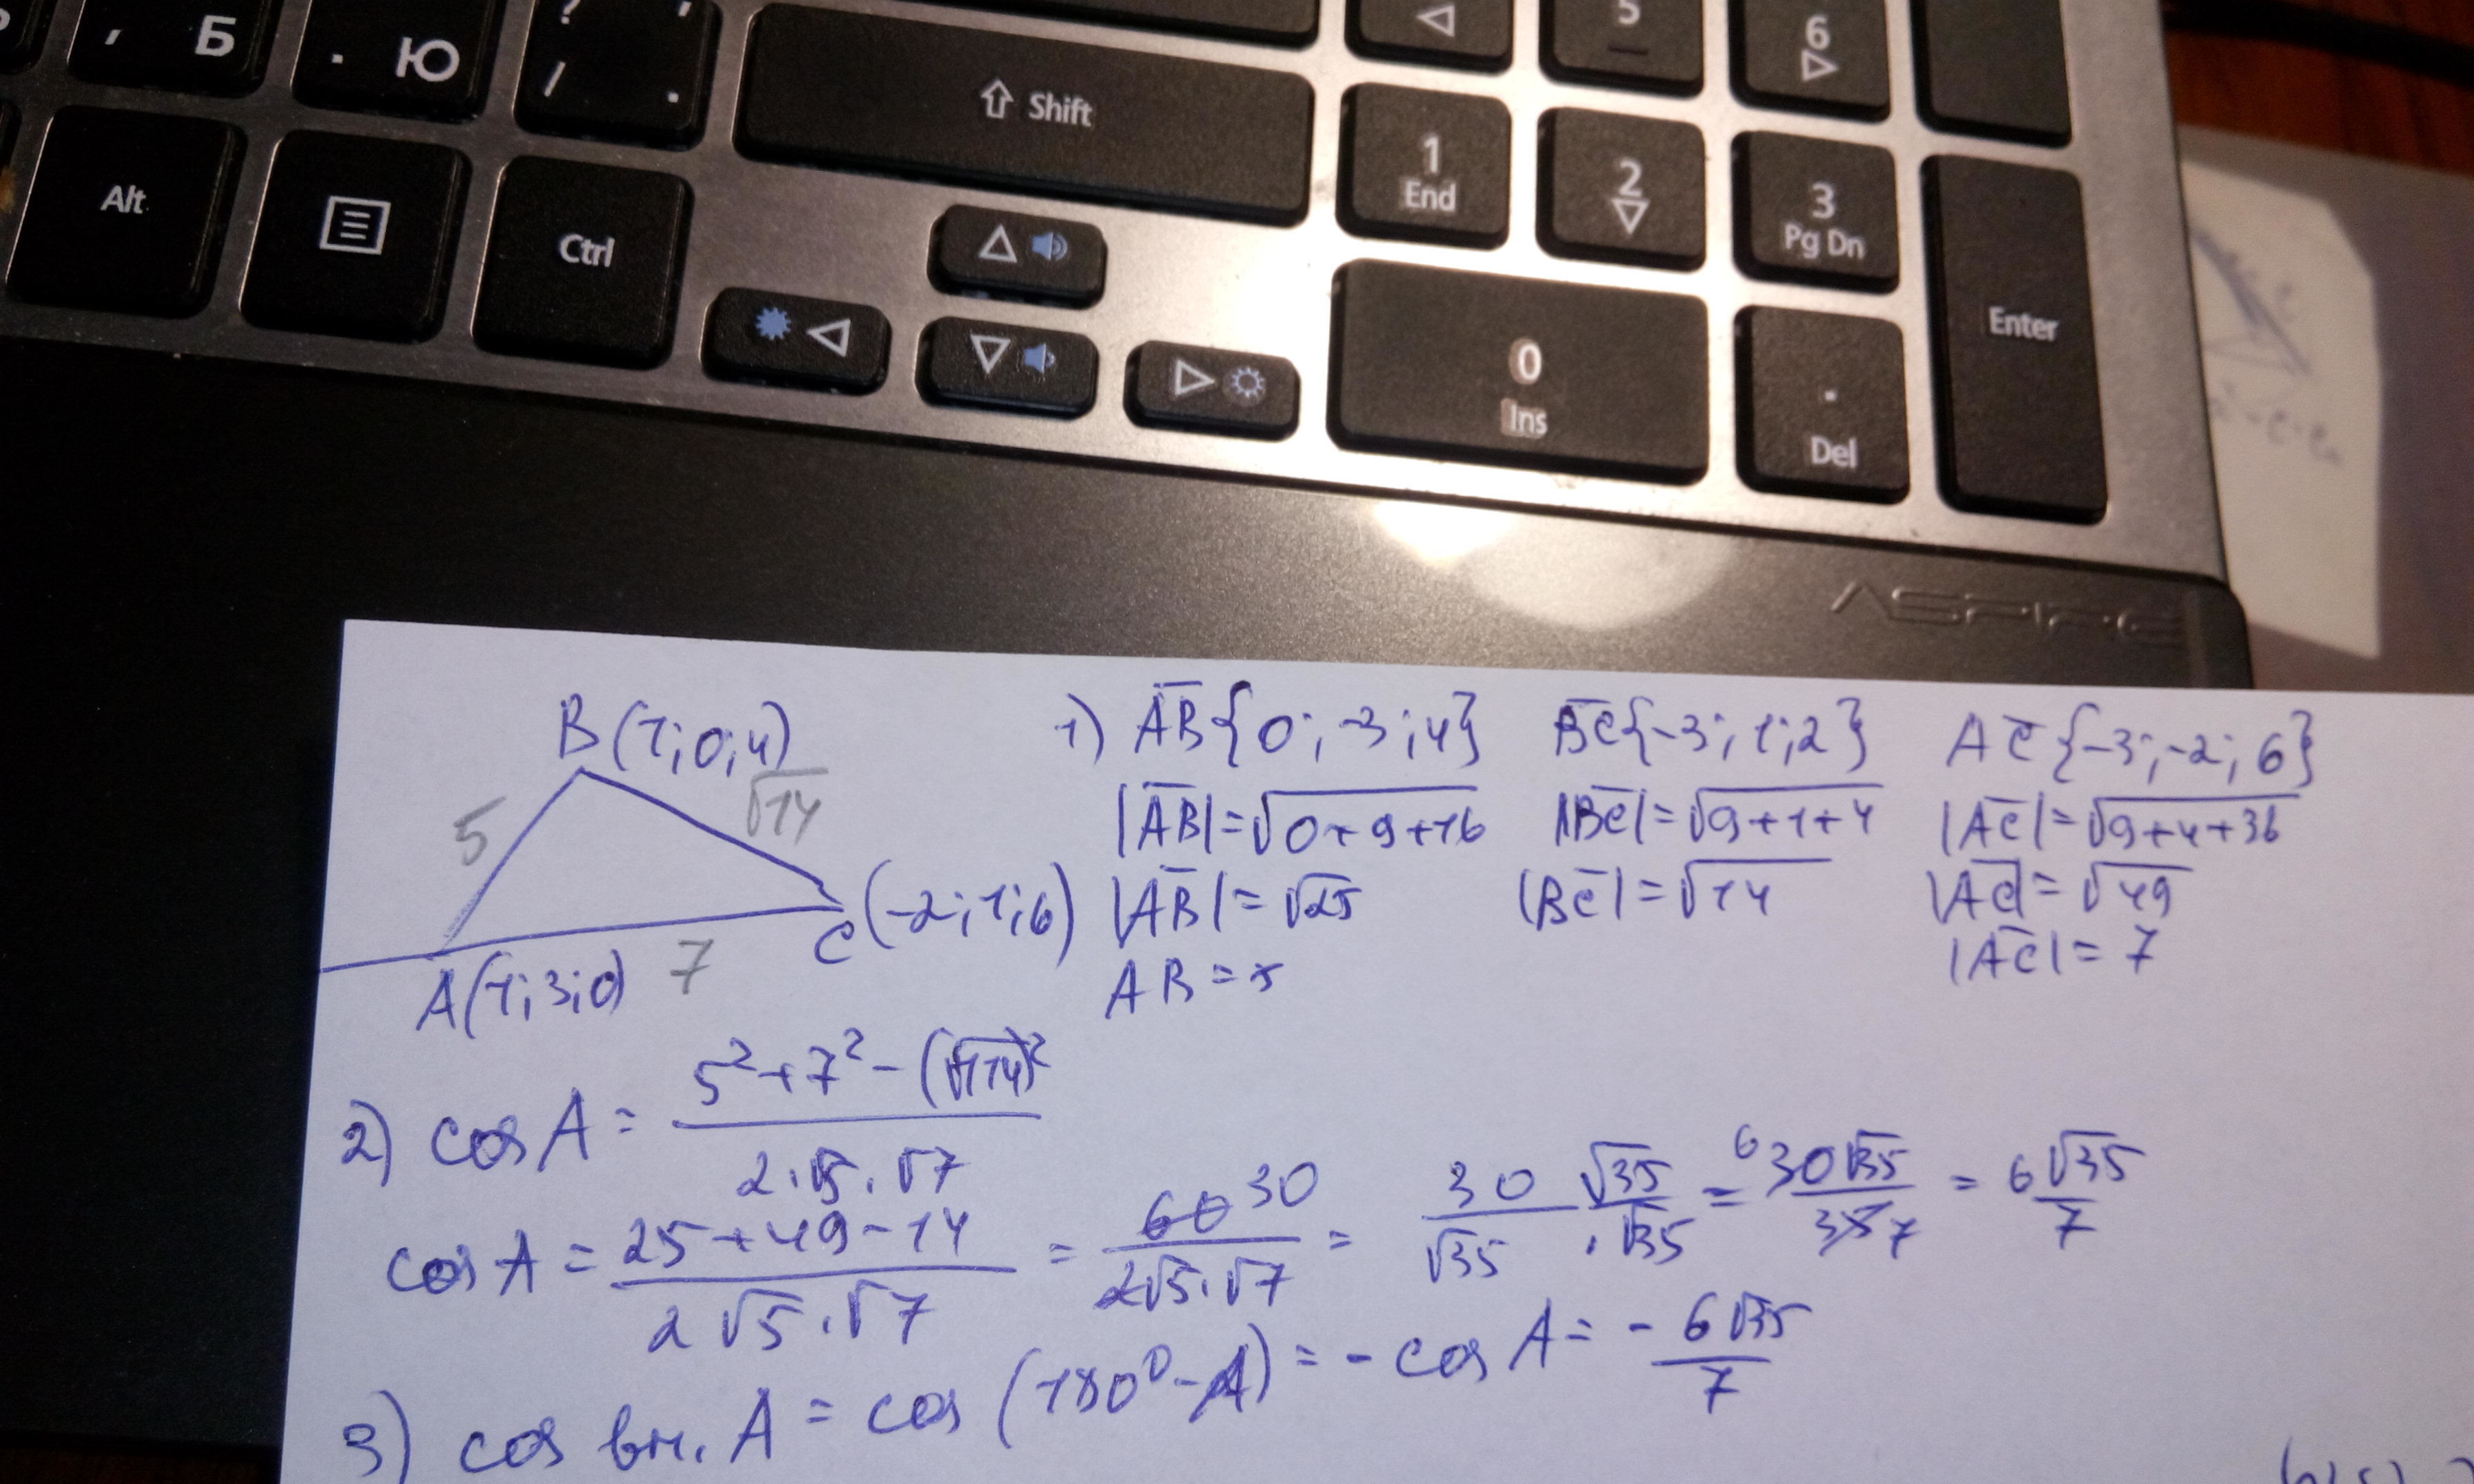 , Б
. Ю
? ,
/ .
⇧ Shift
5
6
Alt
Ctrl
1
End
2
3
Pg Dn
Enter
0
Ins
.
Del
ASPIRE
B(1;0;4)
5
√14
C(-2;1;6)
A(1;3;0)
7
1) AB{0;-3;4} BC{-3;1;2} AC{-3;-2;6}
|AB|=√0+9+16 |BC|=√9+1+4 |AC|=√9+4+36
|AB|=√25 |BC|=√14 |AC|=√49
AB=5 |AC|=7
2) cosA= 5²+7²-(√14)² / 2·√5·√7
cosA= 25+49-14 / 2√5·√7 = 60 30 / 2√5·√7 = 30 √35 / √35 ·√35 = 6 30√35 / 35 7 = 6√35 / 7
3) cos вн. A = cos (180⁰-A) = - cos A = - 6√35 / 7